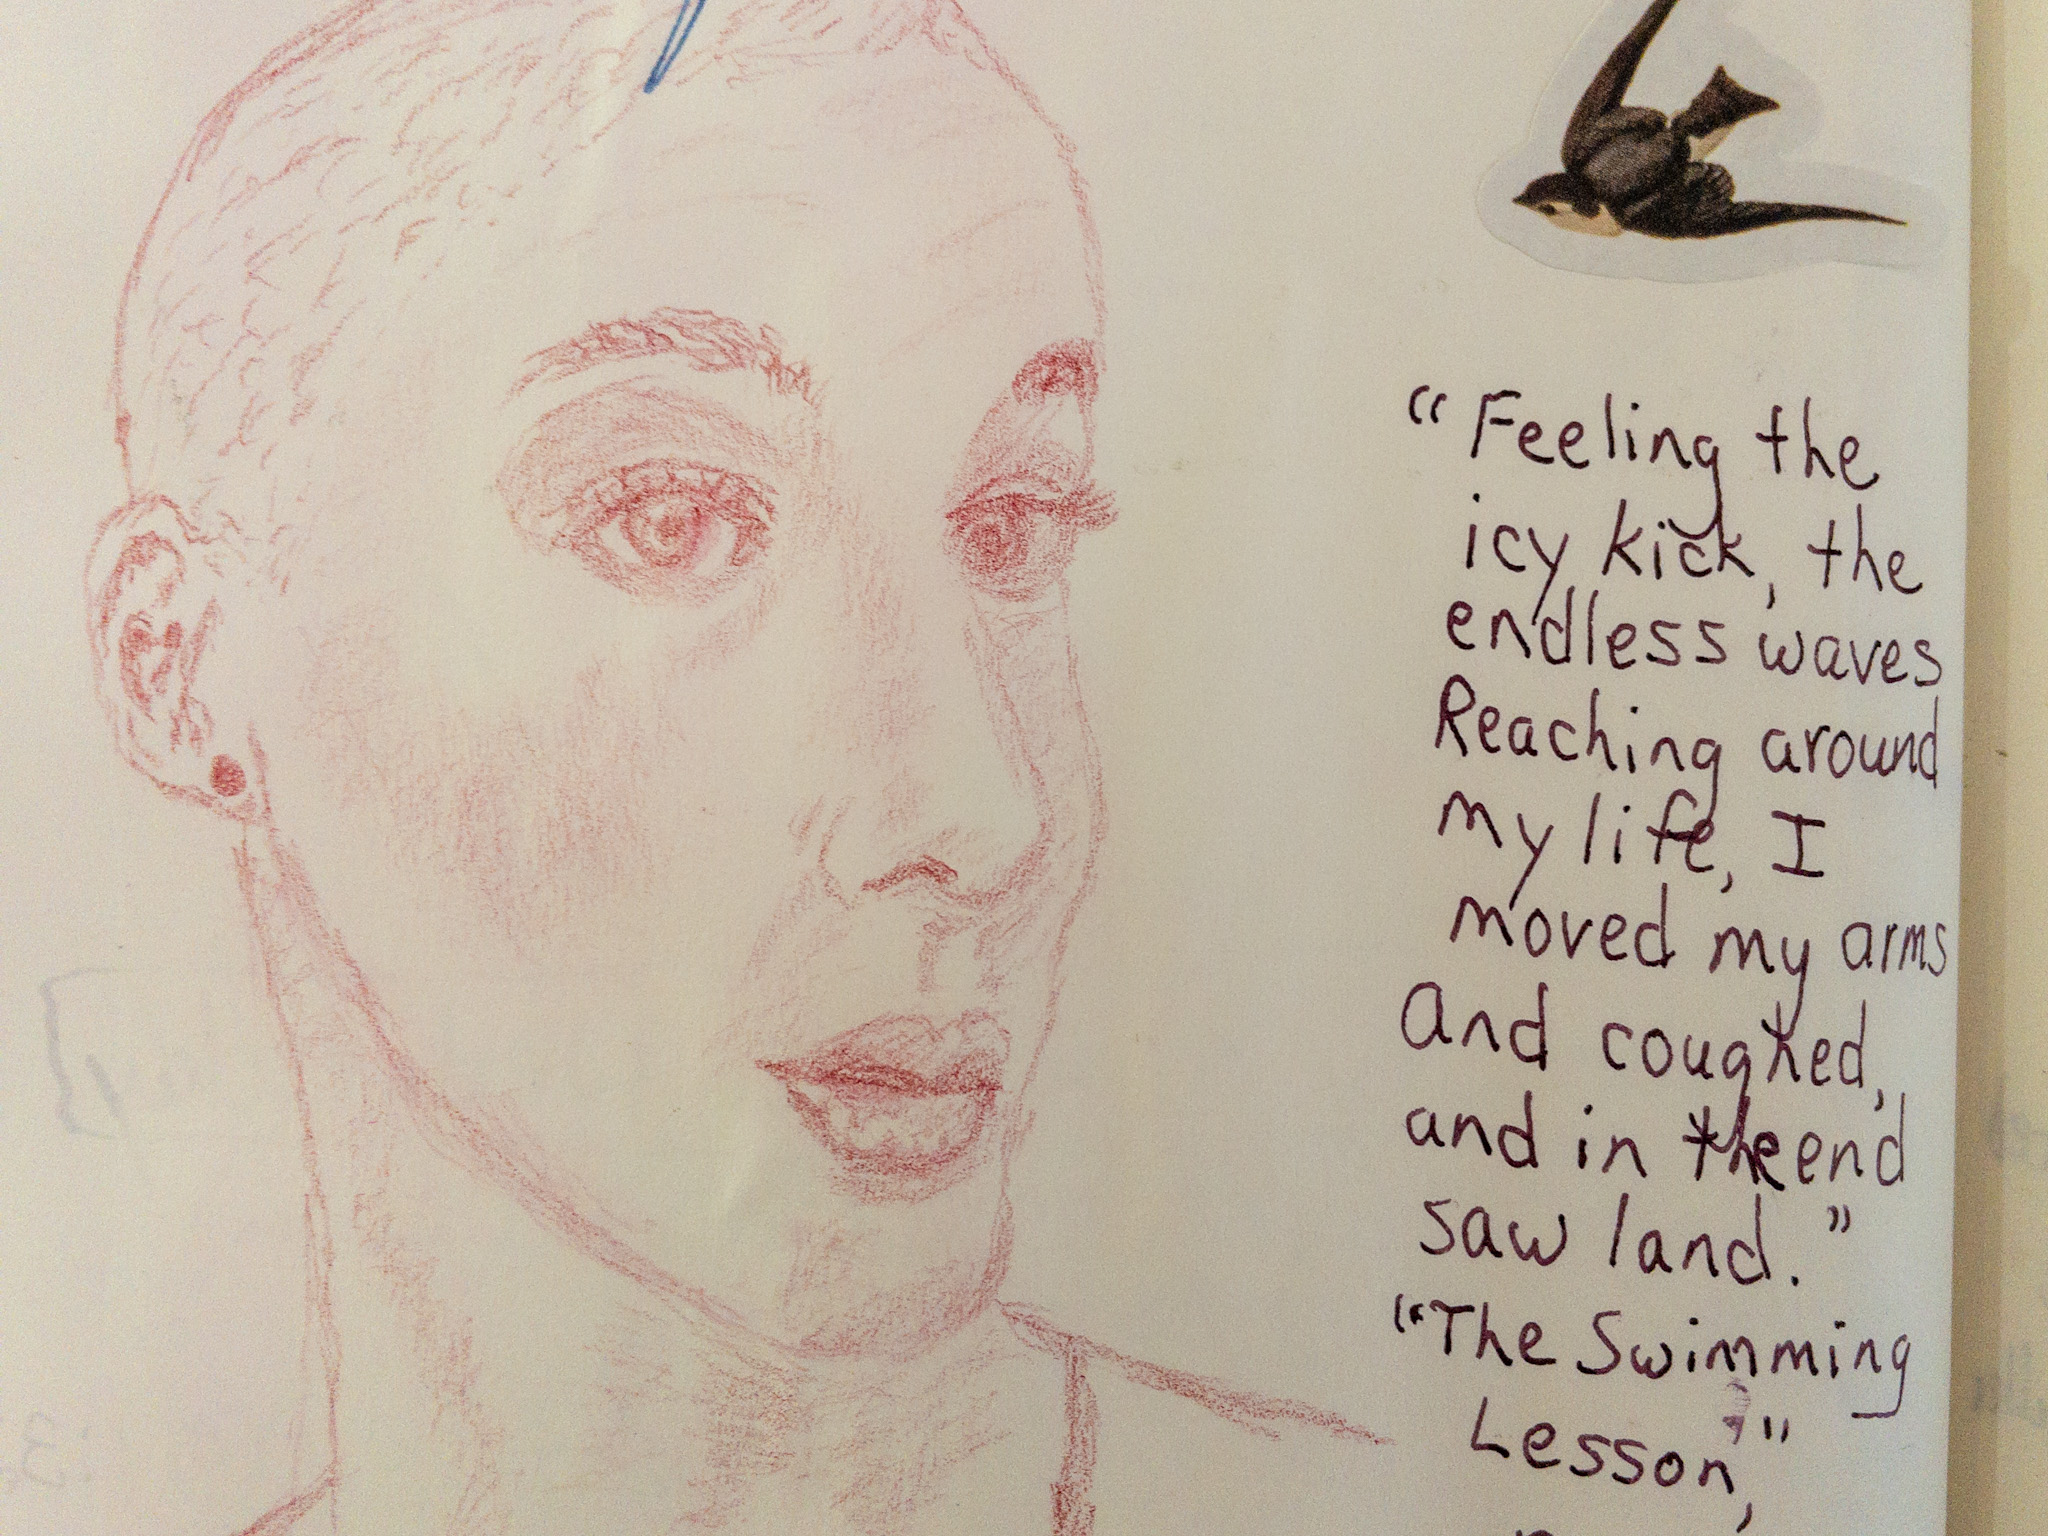 “Feeling the
icy kick, the
endless waves
Reaching around
my life, I
moved my arms
And coughed,
and in the end
saw land.”
“The Swimming
Lesson,”